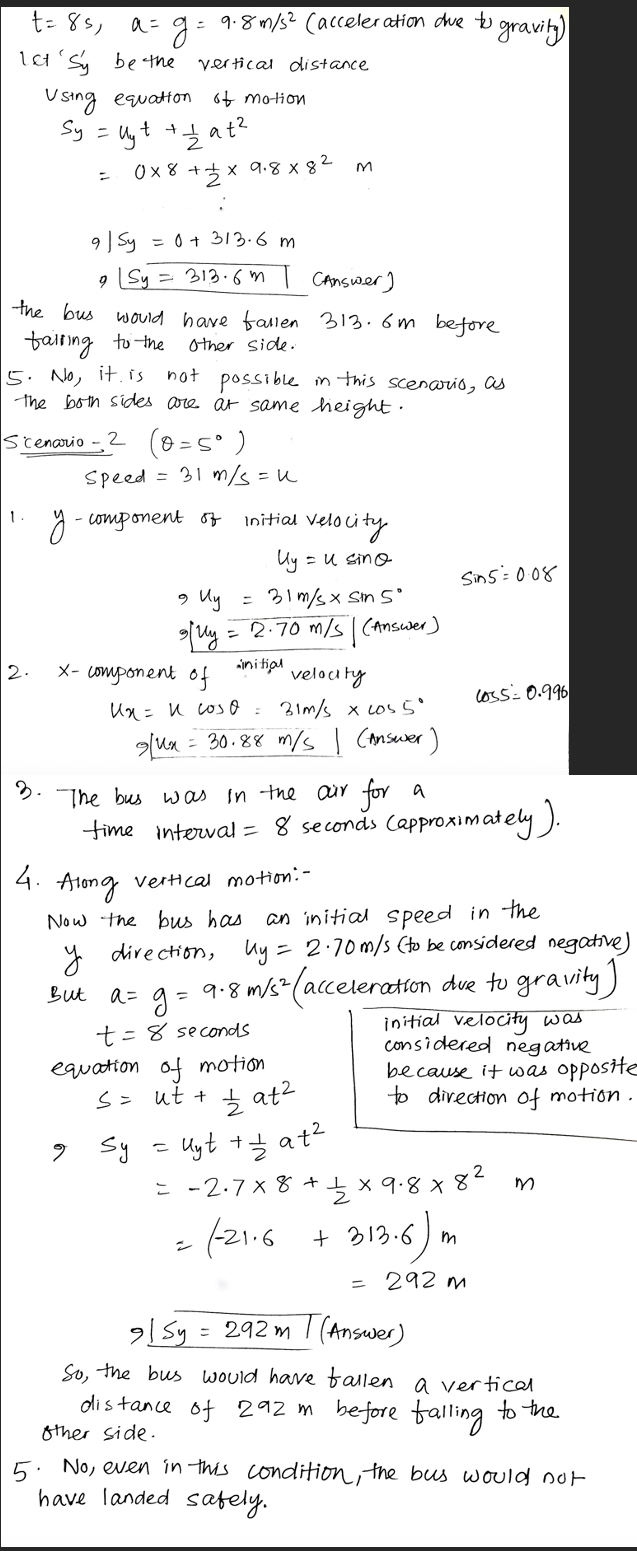 t= 8s, a= g = 9.8 m/s² (acceleration due to gravity)
let 'Sy be the vertical distance
Using equation of motion
Sy = Uyt + 1/2 at²
= 0×8 + 1/2 × 9.8 × 8² m
Sy = 0 + 313.6 m
Sy = 313.6 m (Answer)
the bus would have fallen 313.6m before
falling to the other side.
5. No, it is not possible in this scenario, as
the both sides are at same height.
Scenario-2 (θ=5°)
Speed = 31 m/s = u
1. y-component of initial velocity
Uy = u sinθ
sin5°=0.08
Uy = 31m/s × sin 5°
Uy = 2.70 m/s (Answer)
2. x-component of initial velocity
Ux = u cosθ = 31m/s × cos 5°
cos5°=0.996
Ux = 30.88 m/s (Answer)
3. The bus was in the air for a
time interval = 8 seconds (approximately).
4. Along vertical motion:-
Now the bus has an initial speed in the
y direction, Uy = 2.70 m/s (to be considered negative)
But a= g = 9.8 m/s² (acceleration due to gravity)
t = 8 seconds
equation of motion
S = ut + 1/2 at²
initial velocity was
considered negative
because it was opposite
to direction of motion.
Sy = Uyt + 1/2 at²
= -2.7 × 8 + 1/2 × 9.8 × 8² m
= (-21.6 + 313.6) m
= 292 m
Sy = 292 m (Answer)
So, the bus would have fallen a vertical
distance of 292 m before falling to the
other side.
5. No, even in this condition, the bus would not
have landed safely.